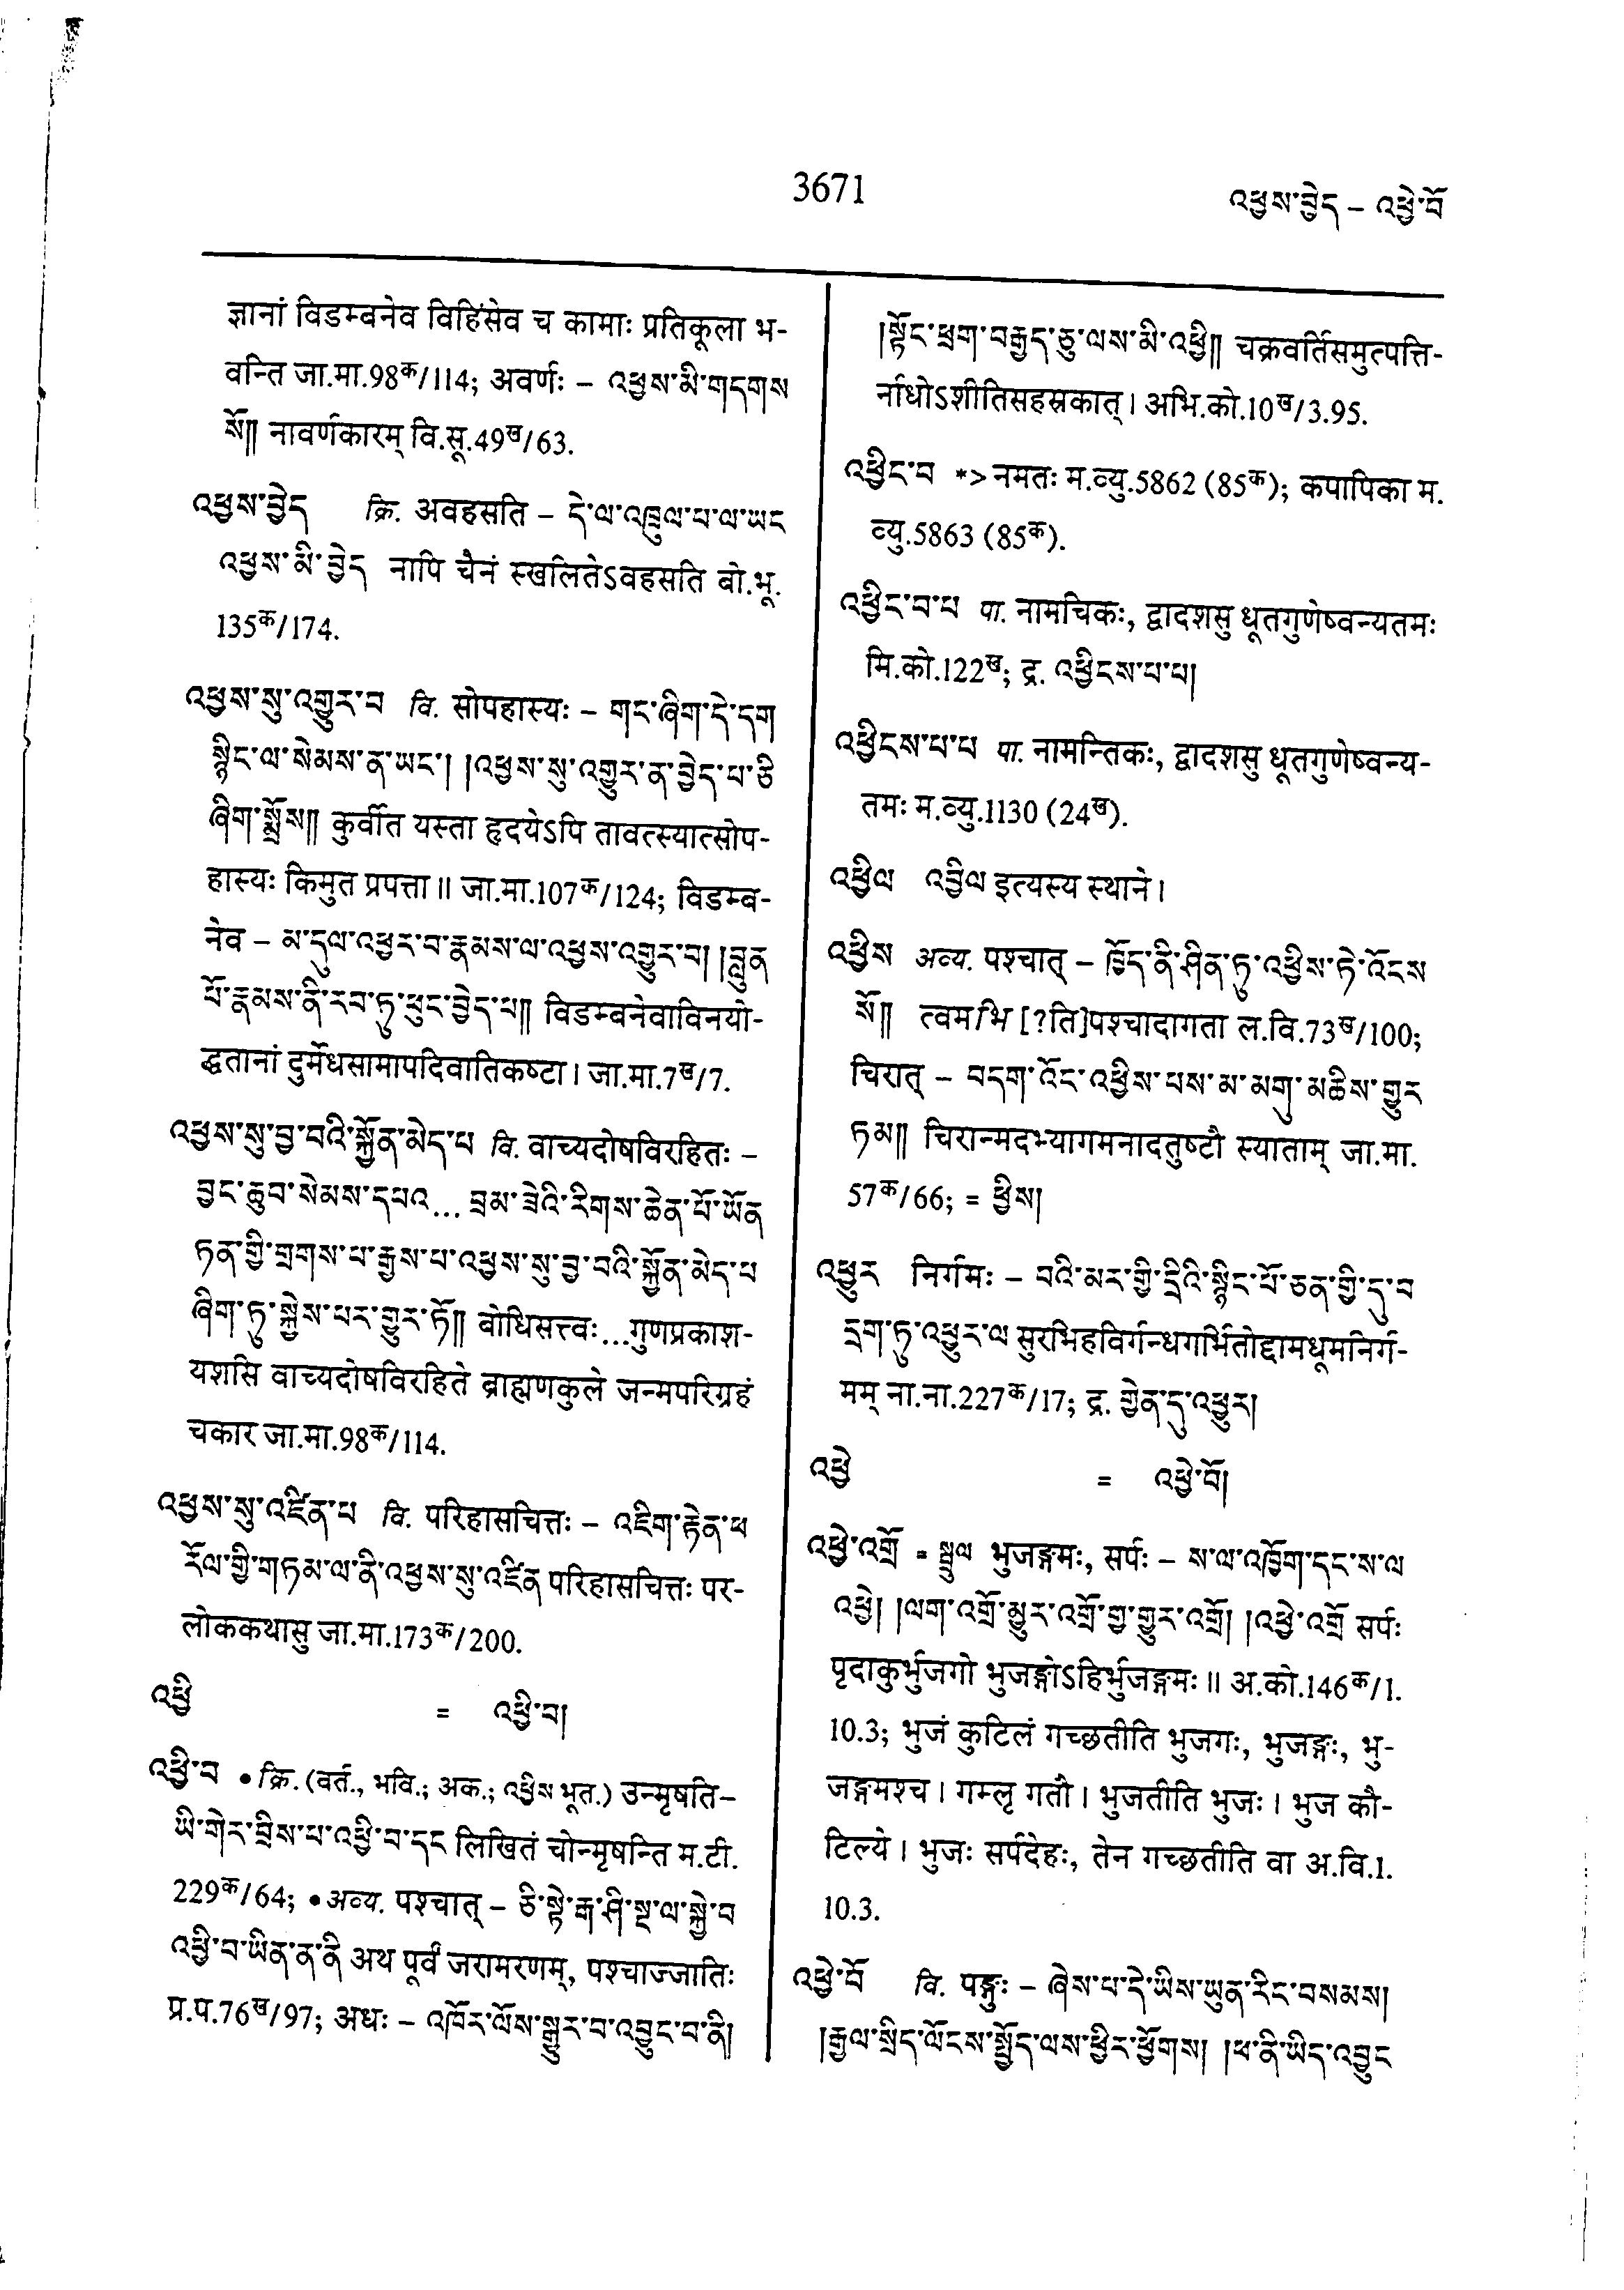 3671
འཕྱས་བྱེད – འཕྱེ་བོ
ज्ञानां विडम्बनेव विहिंसेव च कामाः प्रतिकूला भ-
वन्ति जा.मा.98क/114; अवर्णः – འཕྱས་མི་གདགས
སོ༎ नावर्णकारम् वि.सू.49ख/63.
འཕྱས་བྱེད क्रि. अवहसति – དེ་ལ་འཁྲུལ་པ་ལ་ཡང
འཕྱས་མི་བྱེད नापि चैनं स्खलितेऽवहसति बो.भू.
135क/174.
འཕྱས་སུ་འགྱུར་བ वि. सोपहास्यः – གང་ཞིག་དེ་དག
སྙིང་ལ་སེམས་ན་ཡང་། །འཕྱས་སུ་འགྱུར་ན་བྱེད་པ་ཅི
ཞིག་སྨྲོས༎ कुर्वीत यस्ता हृदयेऽपि तावत्स्यात्सोप-
हास्यः किमुत प्रपत्ता॥ जा.मा.107क/124; विडम्ब-
नेव – མ་དུལ་འཕྱར་བ་རྣམས་ལ་འཕྱས་འགྱུར་བ། །བླུན
པོ་རྣམས་ནི་རབ་ཏུ་ཕུང་བྱེད་པ༎ विडम्बनेवाविनयो-
द्धतानां दुर्मेधसामापदिवातिकष्टा। जा.मा.7ख/7.
འཕྱས་སུ་བྱ་བའི་སྐྱོན་མེད་པ वि. वाच्यदोषविरहितः –
བྱང་ཆུབ་སེམས་དཔའ... བྲམ་ཟེའི་རིགས་ཆེན་པོ་ཡོན
ཏན་གྱི་གྲགས་པ་རྒྱས་པ་འཕྱས་སུ་བྱ་བའི་སྐྱོན་མེད་པ
ཞིག་ཏུ་སྐྱེས་པར་གྱུར་ཏོ༎ बोधिसत्त्वः...गुणप्रकाश-
यशसि वाच्यदोषविरहिते ब्राह्मणकुले जन्मपरिग्रहं
चकार जा.मा.98क/114.
འཕྱས་སུ་འཛིན་པ वि. परिहासचित्तः – འཇིག་རྟེན་ཕ
རོལ་གྱི་གཏམ་ལ་ནི་འཕྱས་སུ་འཛིན परिहासचित्तः पर-
लोककथासु जा.मा.173क/200.
འཕྱི = འཕྱི་བ།
འཕྱི་བ • क्रि. (वर्त., भवि.; अक.; འཕྱིས भूत.) उन्मृषति–
ཡི་གེར་བྲིས་པ་འཕྱི་བ་དང लिखितं चोन्मृषन्ति म.टी.
229क/64; • अव्य. पश्चात् – ཅི་སྟེ་རྒ་ཤི་སྔ་ལ་སྐྱེ་བ
འཕྱི་བ་ཡིན་ན་ནི अथ पूर्वं जरामरणम्, पश्चाज्जातिः
प्र.प.76ख/97; अधः – འཁོར་ལོས་སྒྱུར་བ་འབྱུང་བ་ནི།
།སྟོང་ཕྲག་བརྒྱད་ཅུ་ལས་མི་འཕྱི༎ चक्रवर्तिसमुत्पत्ति-
र्नाधोऽशीतिसहस्रकात्। अभि.को.10ख/3.95.
འཕྱིང་བ *> नमतः म.व्यु.5862 (85क); कपापिका म.
व्यु.5863 (85क).
འཕྱིང་བ་པ पा. नामचिकः, द्वादशसु धूतगुणेष्वन्यतमः
मि.को.122ख; द्र. འཕྱིངས་པ་པ།
འཕྱིངས་པ་པ पा. नामन्तिकः, द्वादशसु धूतगुणेष्वन्य-
तमः म.व्यु.1130 (24ख).
འཕྱིལ འཁྱིལ इत्यस्य स्थाने।
འཕྱིས अव्य. पश्चात् – ཁྱོད་ནི་ཤིན་ཏུ་འཕྱིས་ཏེ་འོངས
སོ༎ त्वमभि [?ति]पश्चादागता ल.वि.73ख/100;
चिरात् – བདག་འོང་འཕྱིས་པས་མ་མགུ་མཆིས་གྱུར
ཏམ༎ चिरान्मदभ्यागमनादतुष्टौ स्याताम् जा.मा.
57क/66; = ཕྱིས།
འཕྱུར निर्गमः – བའི་མར་གྱི་དྲིའི་སྙིང་པོ་ཅན་གྱི་དུ་བ
དྲག་ཏུ་འཕྱུར་ལ सुरभिहविर्गन्धगर्भितोद्दामधूमनिर्ग-
मम् ना.ना.227क/17; द्र. གྱེན་དུ་འཕྱུར།
འཕྱེ = འཕྱེ་བོ།
འཕྱེ་འགྲོ = སྦྲུལ भुजङ्गमः, सर्पः – ས་ལ་འཁྱོག་དང་ས་ལ
འཕྱེ། །ལག་འགྲོ་མྱུར་འགྲོ་གྱ་གྱུར་འགྲོ། །འཕྱེ་འགྲོ सर्पः
पृदाकुर्भुजगो भुजङ्गोऽहिर्भुजङ्गमः॥ अ.को.146क/1.
10.3; भुजं कुटिलं गच्छतीति भुजगः, भुजङ्गः, भु-
जङ्गमश्च। गम्लृ गतौ। भुजतीति भुजः। भुज कौ-
टिल्ये। भुजः सर्पदेहः, तेन गच्छतीति वा अ.वि.1.
10.3.
འཕྱེ་བོ वि. पङ्गुः – ཞེས་པ་དེ་ཡིས་ཡུན་རིང་བསམས།
།རྒྱལ་སྲིད་ལོངས་སྤྱོད་ལས་ཕྱིར་ཕྱོགས། །ཕ་ནི་ཡིད་འབྱུང